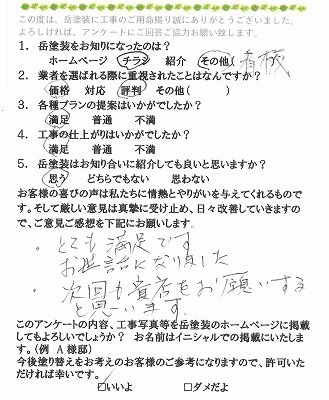 この度は、岳塗装に工事のご用命賜り誠にありがとうございました。
よろしければ、アンケートにご回答ご協力お願い致します。
1. 岳塗装をお知りになったのは？
ホームページ　チラシ　紹介　その他（看板
2. 業者を選ばれる際に重視されたことはなんですか？
価格　対応　評判　その他（　　　）
3. 各種プランの提案はいかがでしたか？
満足　普通　不満
4. 工事の仕上がりはいかがでしたか？
満足　普通　不満
5. 岳塗装はお知り合いに紹介しても良いと思いますか？
思う　どちらでもない　思わない
お客様の喜びの声は私たちに情熱とやりがいを与えてくれるものです。そして厳しい意見は真摯に受け止め、日々改善していきますので、ご意見ご感想を下記にお願いします。
・とても満足です
お世話になりました
・次回も貴店をお願いする
と思います。
このアンケートの内容、工事写真等を岳塗装のホームページに掲載
してもよろしいでしょうか？　お名前はイニシャルでの掲載にいたします。（例　A 様邸）
今後塗り替えをお考えのお客様のご参考になりますので、許可いただければ幸いです。
☑いいよ　□ダメだよ